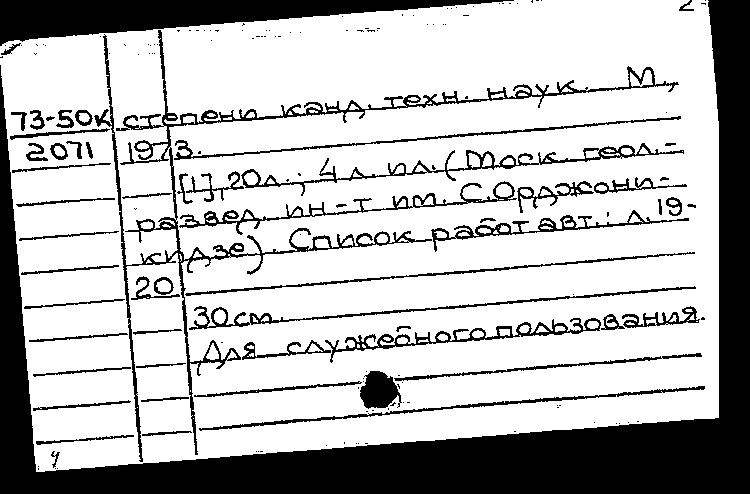 2
73-50к степени канд. техн. наук. М.,
2071 1973.
[1], 20л.; 4 л. ил. (Моск. геол.-
развед. ин-т им. С.Орджони-
кидзе). Список работ авт.: л.19-
20
30см.
Для служебного пользования.
4